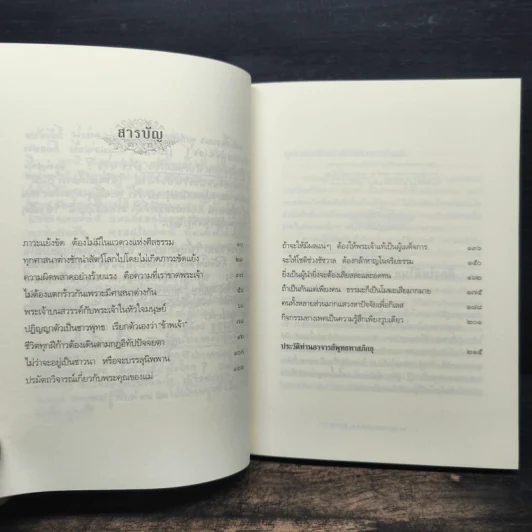 สารบัญ
ภาวะแย้งขัด ต้องไม่มีในแวดวงแห่งศีลธรรม
ทุกศาสนาต่างชักนำสัตว์โลกไปโดยไม่เกิดภาวะขัดแย้ง
ความผิดพลาดอย่างร้ายแรง คือความที่เราขาดพระเจ้า
ไม่ต้องแตกร้าวกันเพราะมีศาสนาต่างกัน
พระเจ้าบนสวรรค์กับพระเจ้าในหัวใจมนุษย์
ปฏิญญาตัวเป็นชาวพุทธ เรียกตัวเองว่า "ข้าพเจ้า"
ชีวิตทุกฝีก้าวต้องเดินตามกฎอิทัปปัจจยตา
ไม่ว่าจะอยู่เป็นชาวนา หรือจะบรรลุนิพพาน
ปรมัตถวิจารณ์เกี่ยวกับพระคุณของแม่
ถ้าจะให้มีผลแน่ๆ ต้องให้พระเจ้าแท้เป็นผู้เผด็จการ ๑๓๖
จะให้โชติช่วงชัชวาล ต้องกล้าหาญในจริยธรรม ๑๕๐
ยิ่งเป็นผู้นำยิ่งจะต้องเสียสละและอดทน
ถ้าเป็นกันแต่เพียงคน ธรรมะก็เป็นโมฆะเสียมากมาย
คนทั้งหลายส่วนมากแสวงหาปัจจัยเพื่อกิเลส
กิจกรรมทางเพศเป็นความรู้สึกเพียงวูบเดียว
ประวัติท่านอาจารย์พุทธทาสภิกขุ ๒๑๕